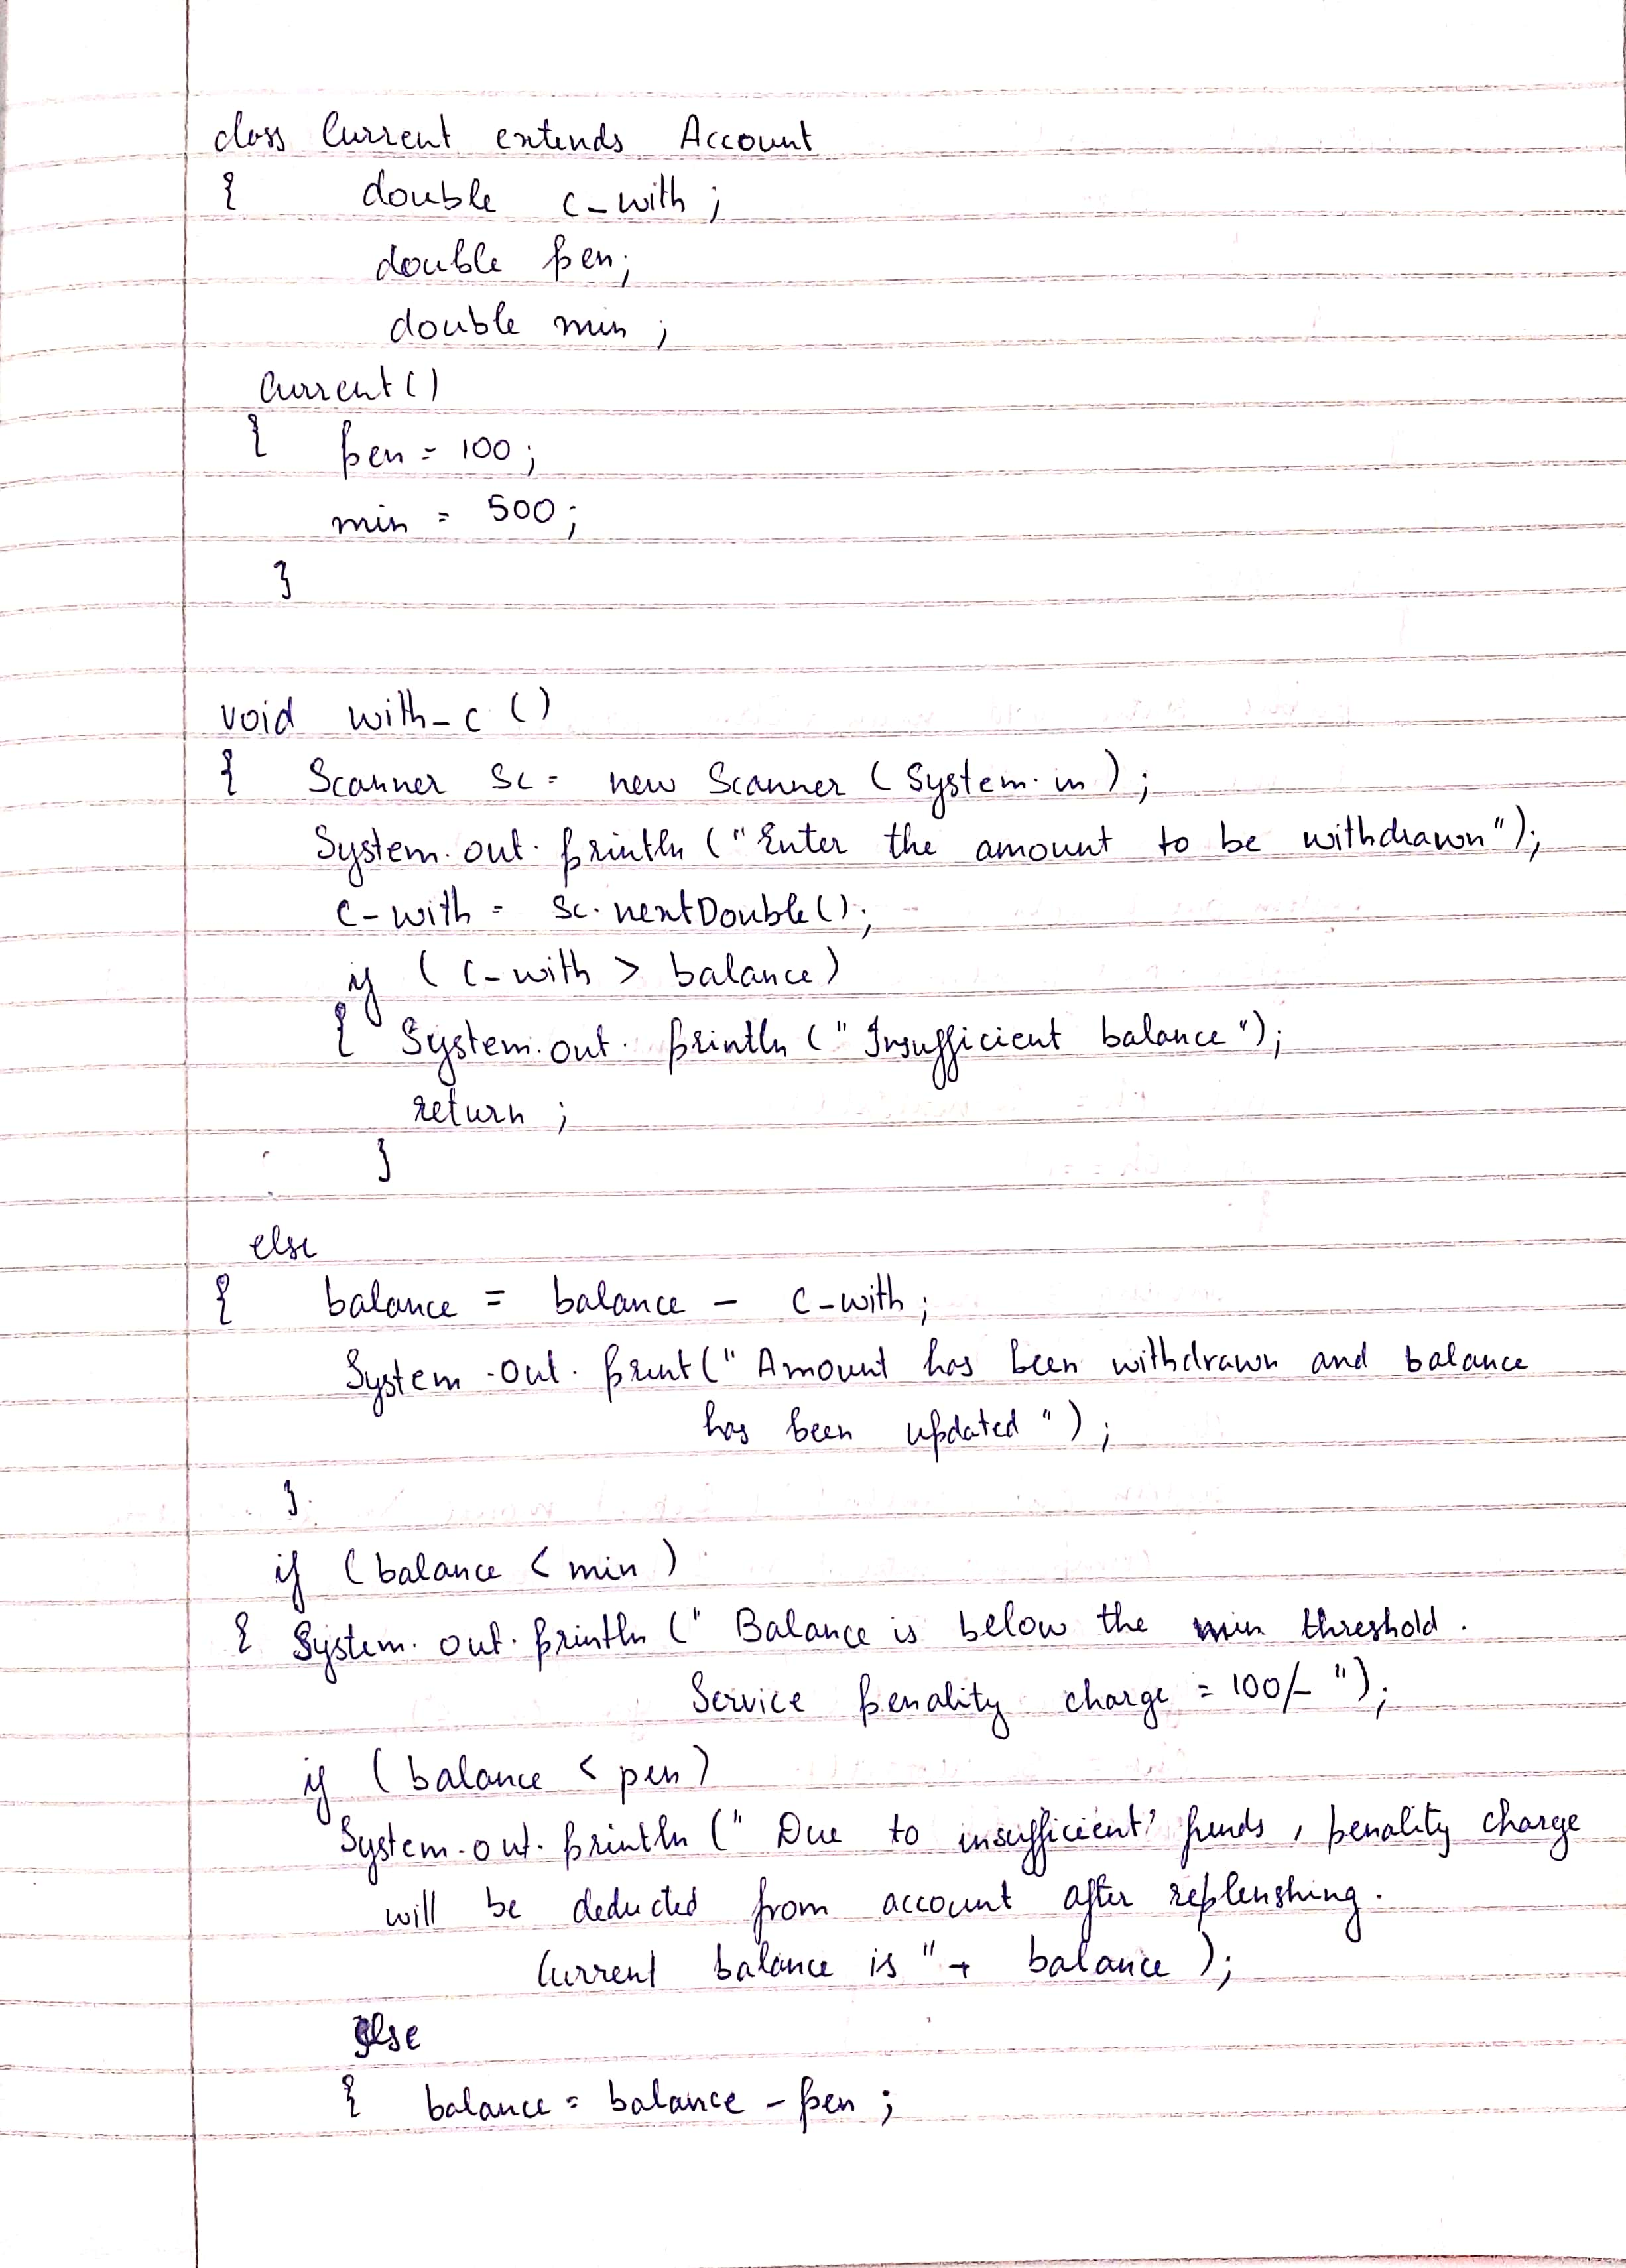 class Current extends Account
{ double c_with;
double pen;
double min;
Current()
{ pen = 100;
min = 500;
}
void with_c ()
{ Scanner sc = new Scanner (System.in);
System.out.println ("Enter the amount to be withdrawn");
c_with = sc.nextDouble();
if (c_with > balance)
{ System.out.println ("Insufficient balance");
return;
}
else
{ balance = balance - c_with;
System.out.print("Amount has been withdrawn and balance
has been updated");
}
if (balance < min)
{ System.out.println ("Balance is below the min threshold.
Service penality charge = 100/- ");
if (balance < pen)
System.out.println ("Due to insufficient funds, penality charge
will be deducted from account after replenshing.
Current balance is "+ balance);
else
{ balance = balance - pen;